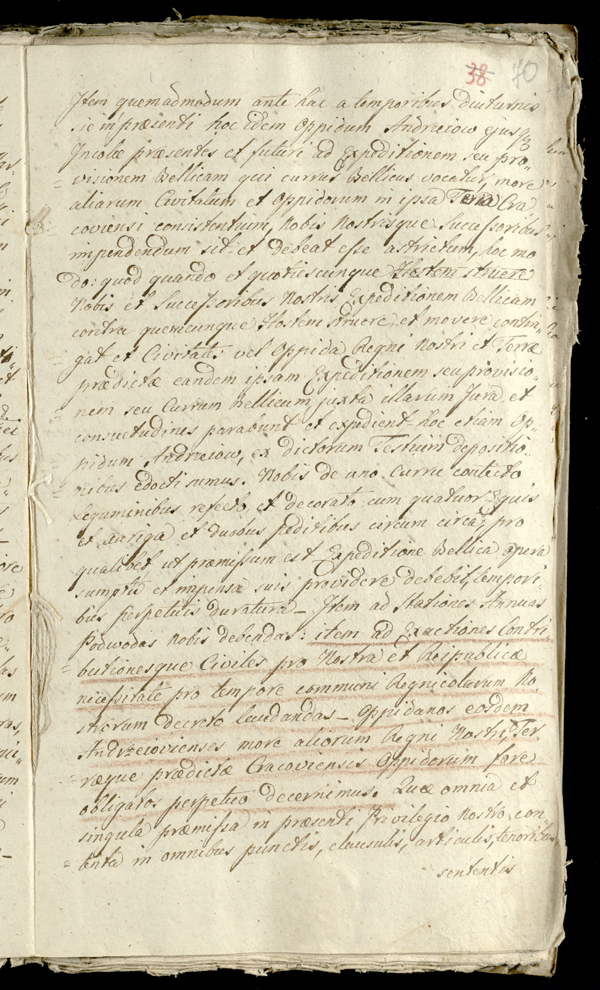 38 70
Item quemadmodum ante hac a temporibus diuturnis
sic in præsenti hoc idem Oppidum Andreiow ejusq
Incolæ præsentes et futuri ad Expeditionem seu pro-
= visionem Bellicam qui currus Bellicus vocatur, more
aliarum Civitatum et Oppidorum in ipsa Terra Cra
coviensi consistentium, Nobis Nostrisque Successoribus
impendendum sit et debeat esse astrictum, hoc mo
do: quod quando et quotiescunque Hostem struere
Nobis et Successoribus Nostris Expeditionem Bellicam
contra quemcunque Hostem struere, et movere contin,
gat et Civitates vel Oppida Regni Nostri et Terræ
prædictæ eandem ipsam Expeditionem seu provisio-
nem seu Currum bellicum juxta illarum Jura et
consvetudines parabunt et expedient hoc etiam Op-
pidum Andreiow, ex dictorum Testium depositio-
nibus edocti sumus. Nobis de uno Curru contecto
Leguminibus refecto, et decorato cum quatuor Equis
et auriga et duobus peditibus circum circa, pro
qualibet ut præmissum est Expeditione Bellica opera
sumptu et impensa suis providere debebit, tempori-
bus perpetuis duratura _ Item ad Stationes Annuas
Podwodas Nobis debendas: item ad Exactiones Contri-
= butionesque Civiles pro Nostra et Reipublicæ
necessitate pro tempore communi Regnicolarum No-
strorum decreto laudandas _ Oppidanos eosdem
Andrzeiovienses more aliorum Regni Nostri, Ter
ræque prædictæ Cracoviensis Oppidorum fore
obligatos perpetuo decernimus. Quæ omnia et
singula præmissa in præsenti Privilegio Nostro con
= tenta in omnibus punctis, clausulis, articulis, tenoribus
sententis